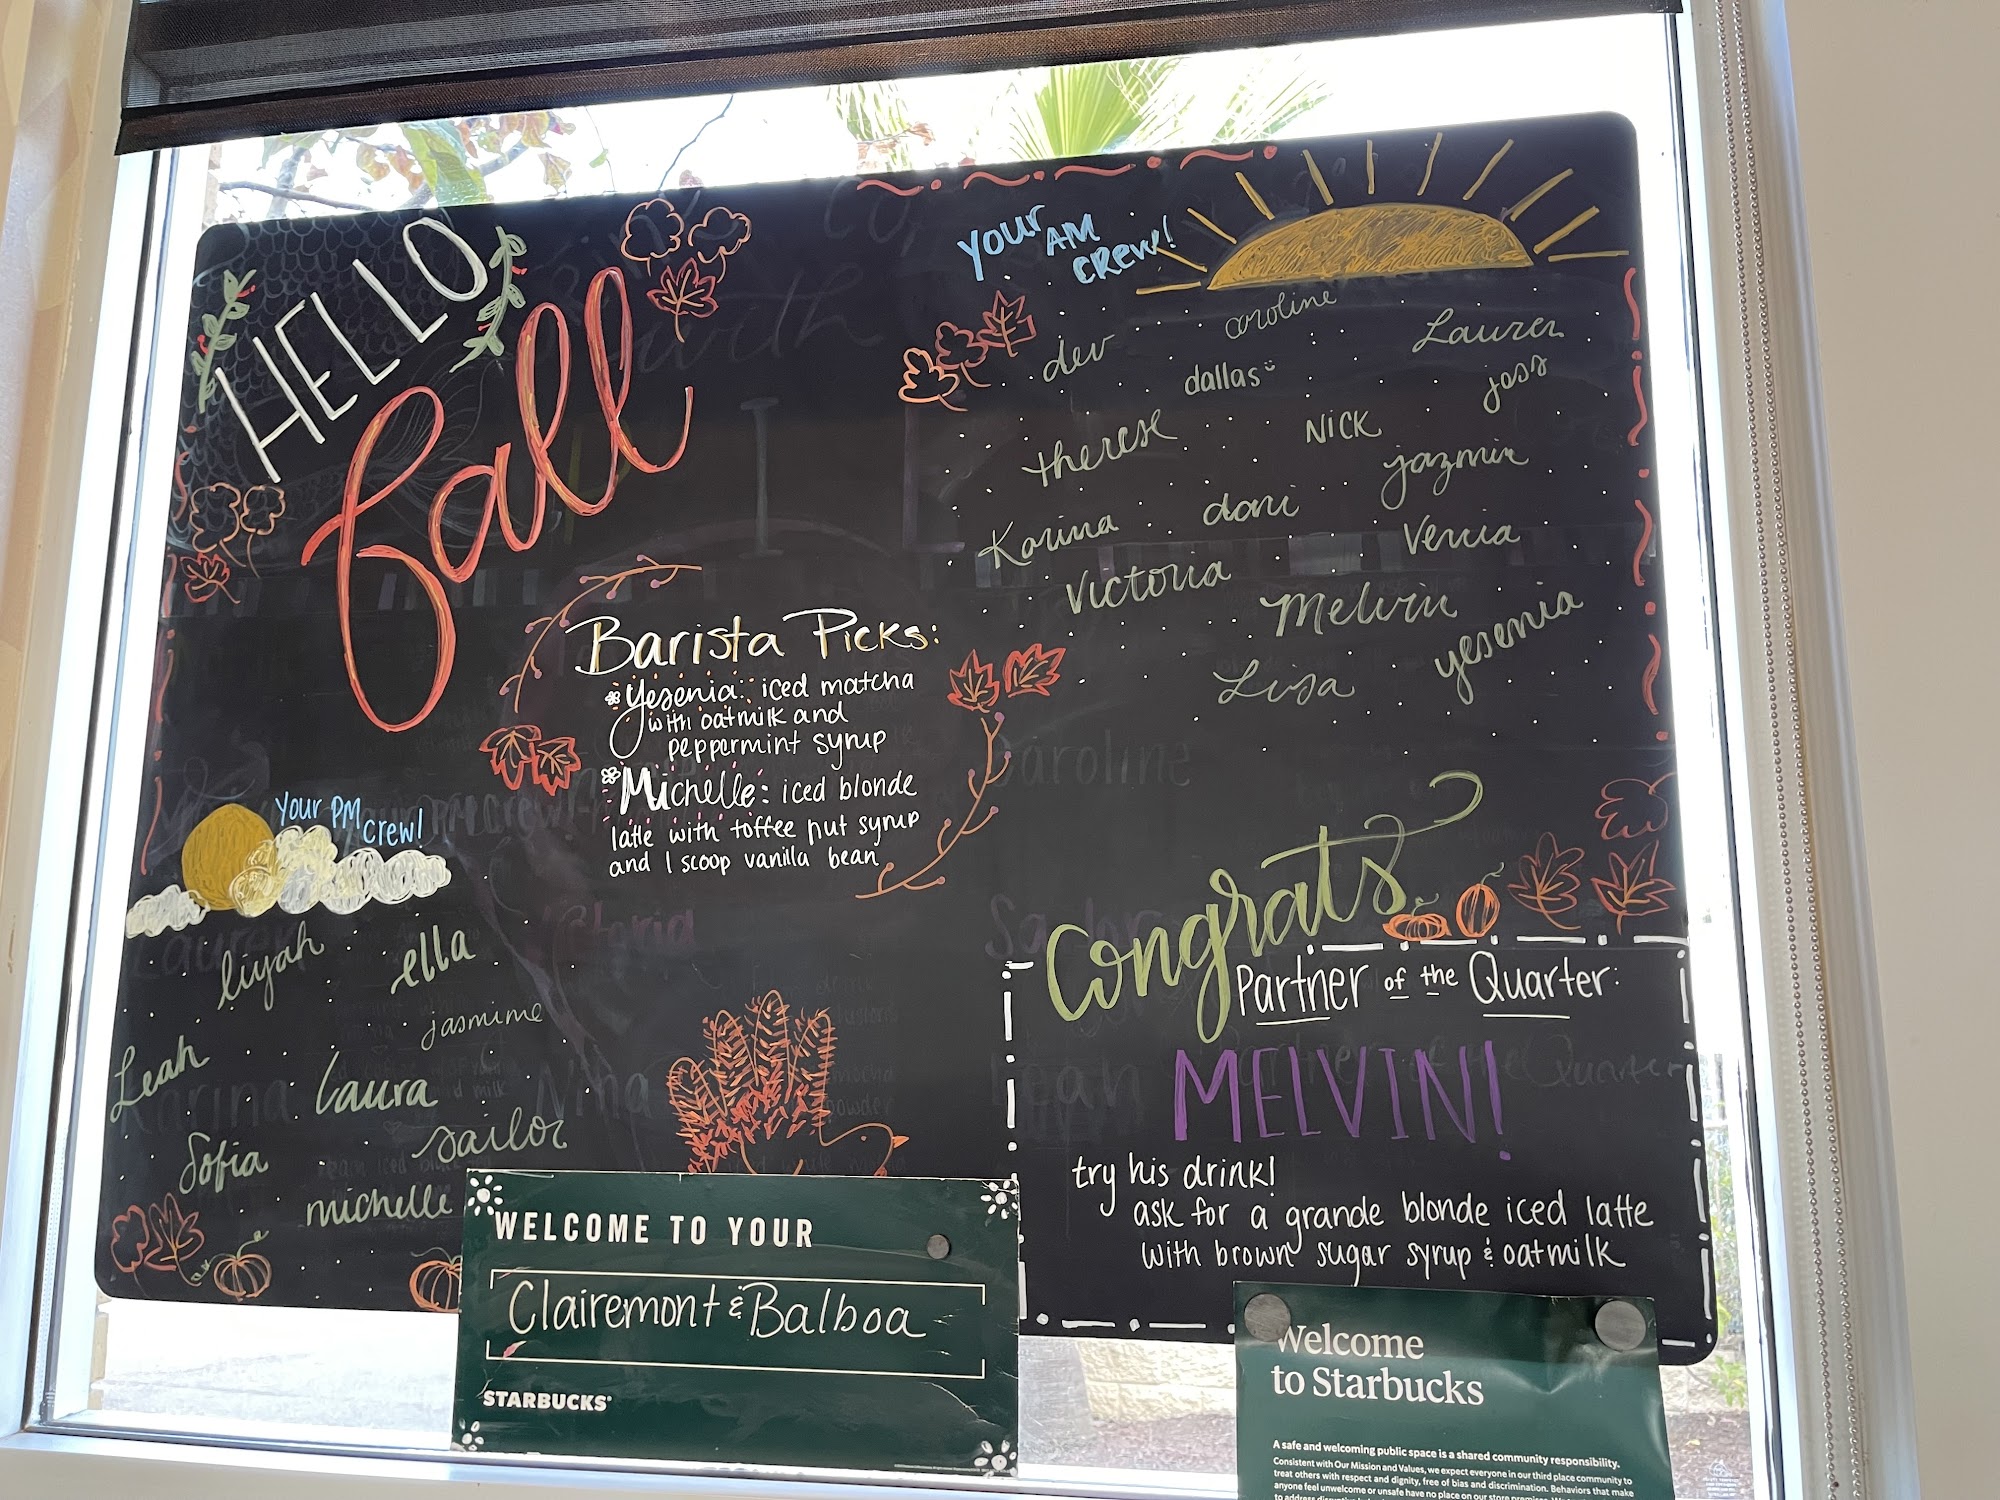 HELLO
fall
Your AM
Crew!
caroline
Lauren
dev
dallas
jess
therese
NICK
jazmin
Karina
dani
Vencia
Victoria
Melvin
yesenia
Lisa
Barista Picks:
Yesenia: iced matcha
with oatmilk and
peppermint syrup
Michelle: iced blonde
latte with toffee nut syrup
and 1 scoop vanilla bean
Your PM
crew!
liyah
ella
jasmime
Leah
Laura
Sofia
sailor
michelle
Congrats
Partner of the Quarter:
MELVIN!
try his drink!
ask for a grande blonde iced latte
with brown sugar syrup & oatmilk
WELCOME TO YOUR
Clairemont & Balboa
STARBUCKS
Welcome
to Starbucks
A safe and welcoming public space is a shared community responsibility.
Consistent with Our Mission and Values, we expect everyone in our third place community to
treat others with respect and dignity, free of bias and discrimination. Behaviors that make
anyone feel unwelcome or unsafe have no place on our store premises.